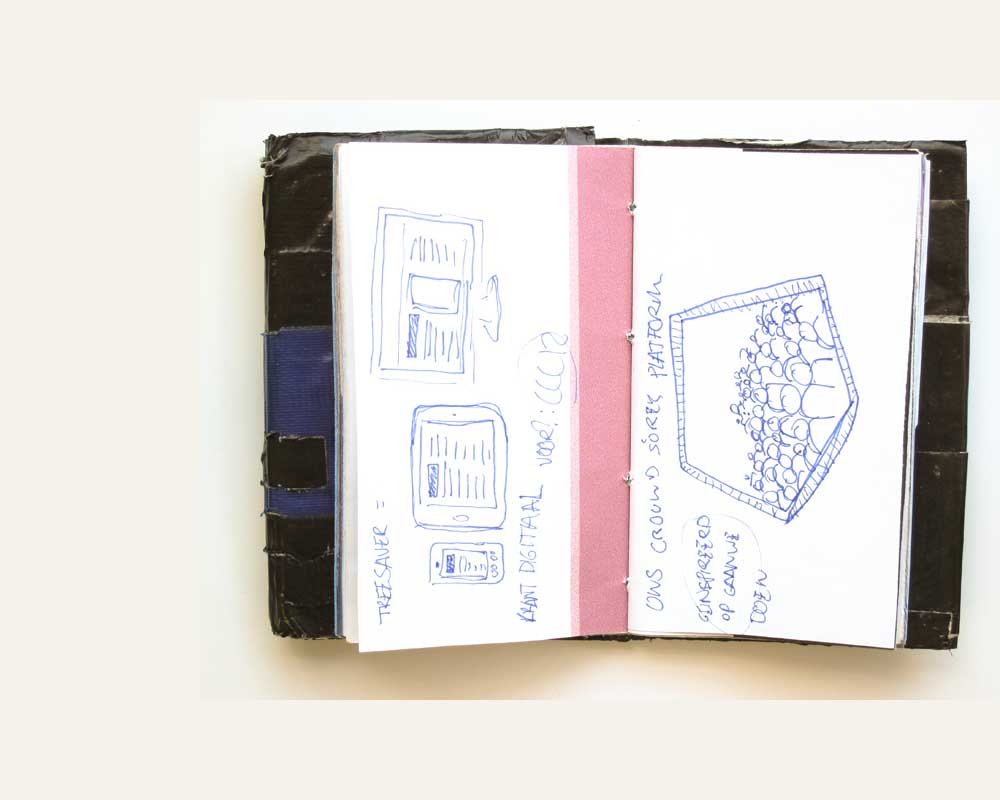 TREESAVER =
KRANT DIGITAAL VOOR?:
ONS CROWD SOREY PLATFORM
GEINSPIREERD
OP GAAN WE
DOEN